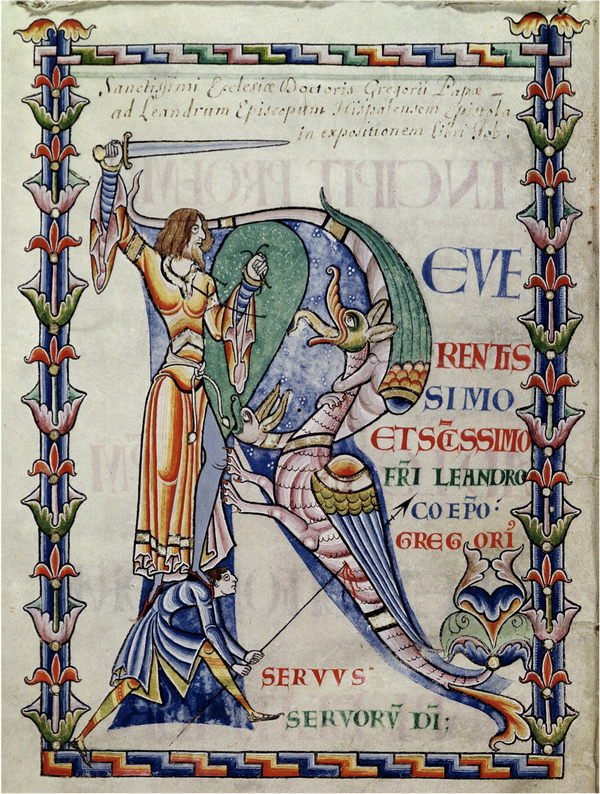 Sanctissimi Ecclesiæ Doctoris Gregorii Papæ
ad Leandrum Episcopum Hispalensem Epistola
in expositionem libri Iob.
R EVE
RENTIS
SIMO
ET SC̄ISSIMO
FR̄I LEANDRO
COEP̄O·
GREGORI᾽
SERVVS
SERVORV̄ DI̅;